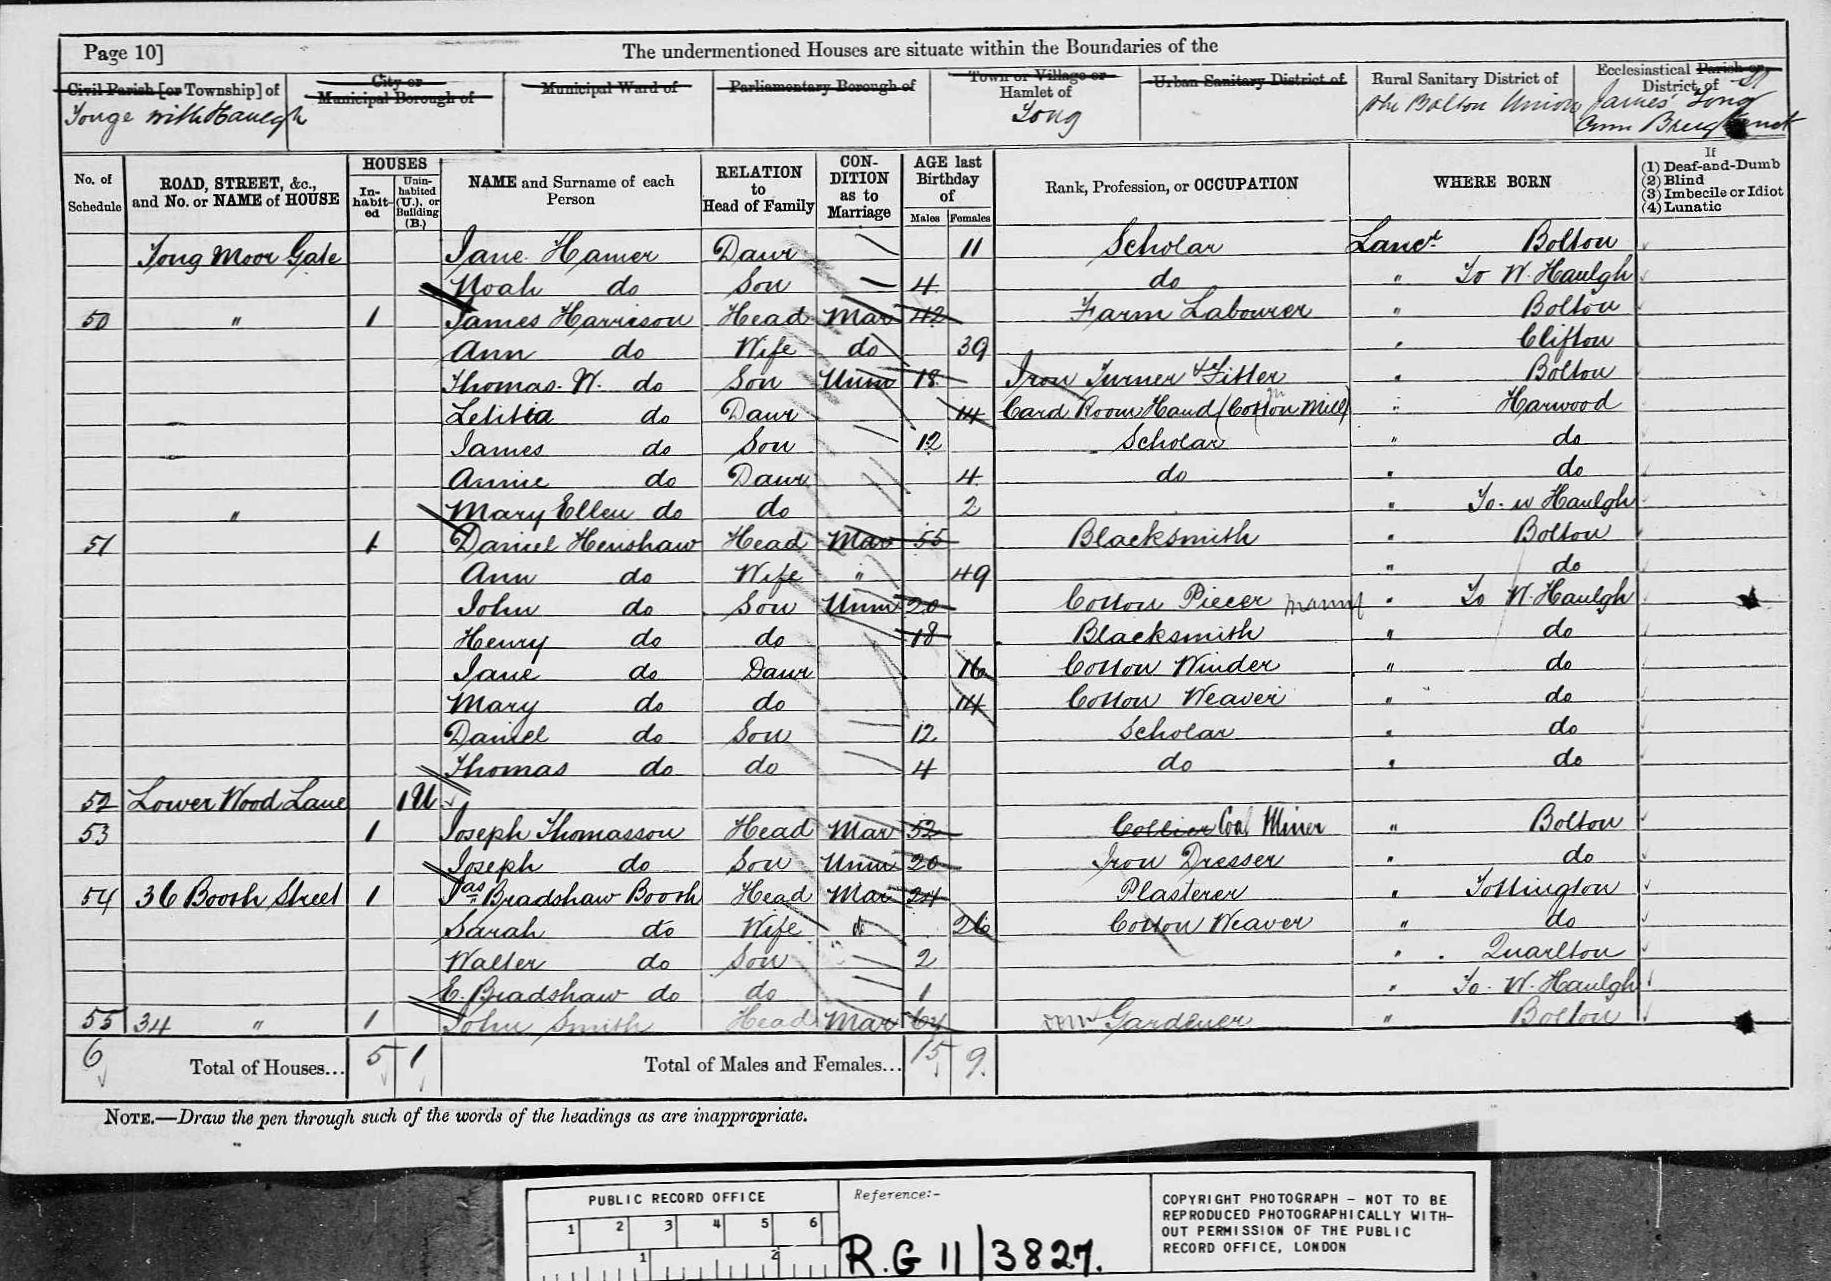 Page 10]
The undermentioned Houses are situate within the Boundaries of the
Civil Parish [or Township] of
City or Municipal Borough of
Municipal Ward of
Parliamentary Borough of
Town or Village or Hamlet of
Urban Sanitary District of
Rural Sanitary District of
Ecclesiastical Parish or District of
Tonge with Haulgh
Tong
The Bolton Union
St James' Tong
No. of Schedule
ROAD, STREET, &c., and No. or NAME of HOUSE
HOUSES
In-habit-ed
Unin-habited (U.), or Building (B.)
NAME and Surname of each Person
RELATION to Head of Family
CON-DITION as to Marriage
AGE last Birthday of
Males
Females
Rank, Profession, or OCCUPATION
WHERE BORN
If
(1) Deaf-and-Dumb
(2) Blind
(3) Imbecile or Idiot
(4) Lunatic
Tong Moor Gate Jane Hamer Daur 11 Scholar Lanc. Bolton
Noah do Son 4 do " To W. Haulgh
50 " 1 James Harrison Head Mar 42 Farm Labourer " Bolton
Ann do Wife do 39 " Clifton
Thomas. W. do Son Unm 18 Iron Turner & Fitter " Bolton
Letitia do Daur 14 Card Room Hand (Cotton Mill) " Harwood
James do Son 12 Scholar " do
Annie do Daur 4 do " do
" Mary Ellen do do 2 " To. w Haulgh
51 1 Daniel Henshaw Head Mar 55 Blacksmith " Bolton
Ann do Wife " 49 " do
John do Son Unm 20 Cotton Piecer manuf " To W. Haulgh
Henry do do 18 Blacksmith " do
Jane do Daur 16 Cotton Winder " do
Mary do do 14 Cotton Weaver " do
Daniel do Son 12 Scholar " do
Thomas do do 4 do " do
52 Lower Wood Lane 1 U
53 1 Joseph Thomasson Head Mar 52 Collier Coal Miner " Bolton
Joseph do Son Unm 20 Iron Dresser " do
54 36 Booth Street 1 Jas Bradshaw Booth Head Mar 24 Plasterer " Tottington
Sarah do Wife do 26 Cotton Weaver " do
Walter do Son " 2 " Quarlton
E. Bradshaw do do 1 " To. W. Haulgh
55 34 " 1 John Smith Head Mar 64 Gardener " Bolton
6 Total of Houses... 5 1 Total of Males and Females... 15 9
NOTE.—Draw the pen through such of the words of the headings as are inappropriate.
PUBLIC RECORD OFFICE
1 2 3 4 5 6
1 2
Reference:-
R.G 11/3827.
COPYRIGHT PHOTOGRAPH - NOT TO BE
REPRODUCED PHOTOGRAPHICALLY WITH-
OUT PERMISSION OF THE PUBLIC
RECORD OFFICE, LONDON